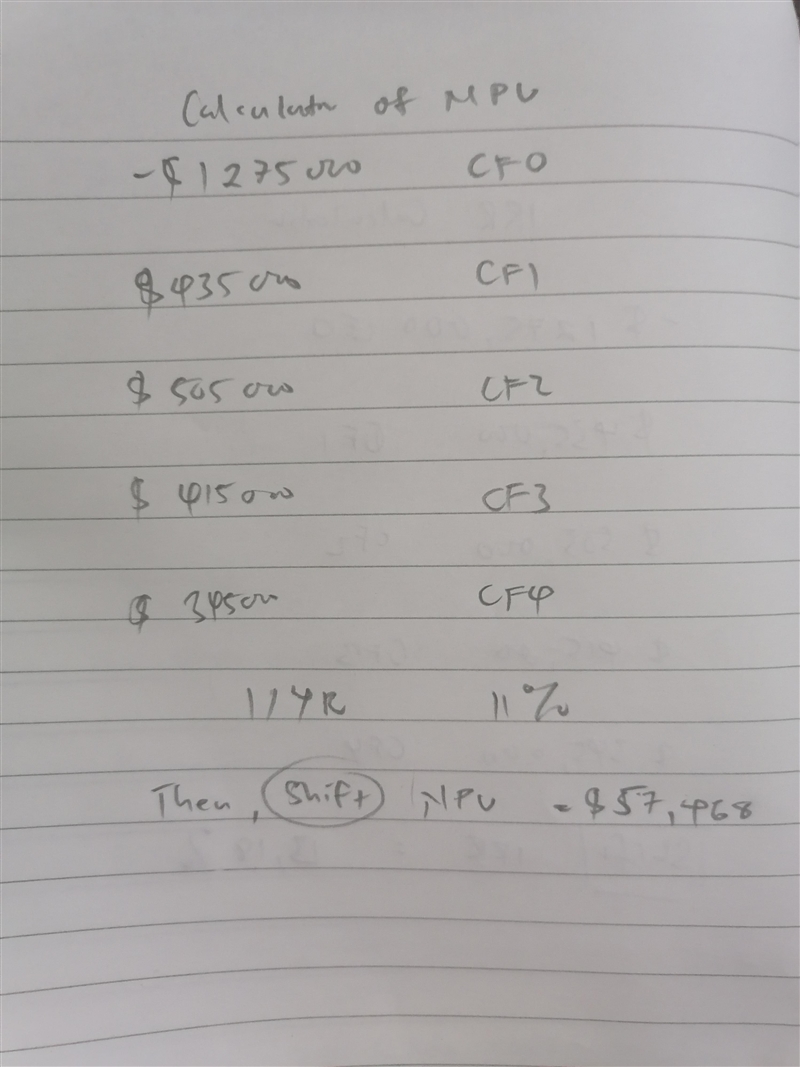 Calculatn of NPV
-$1275000 CF0
$435000 CF1
$505000 CF2
$415000 CF3
$345000 CF4
I/YR 11%
Then, Shift NPV = $57,468